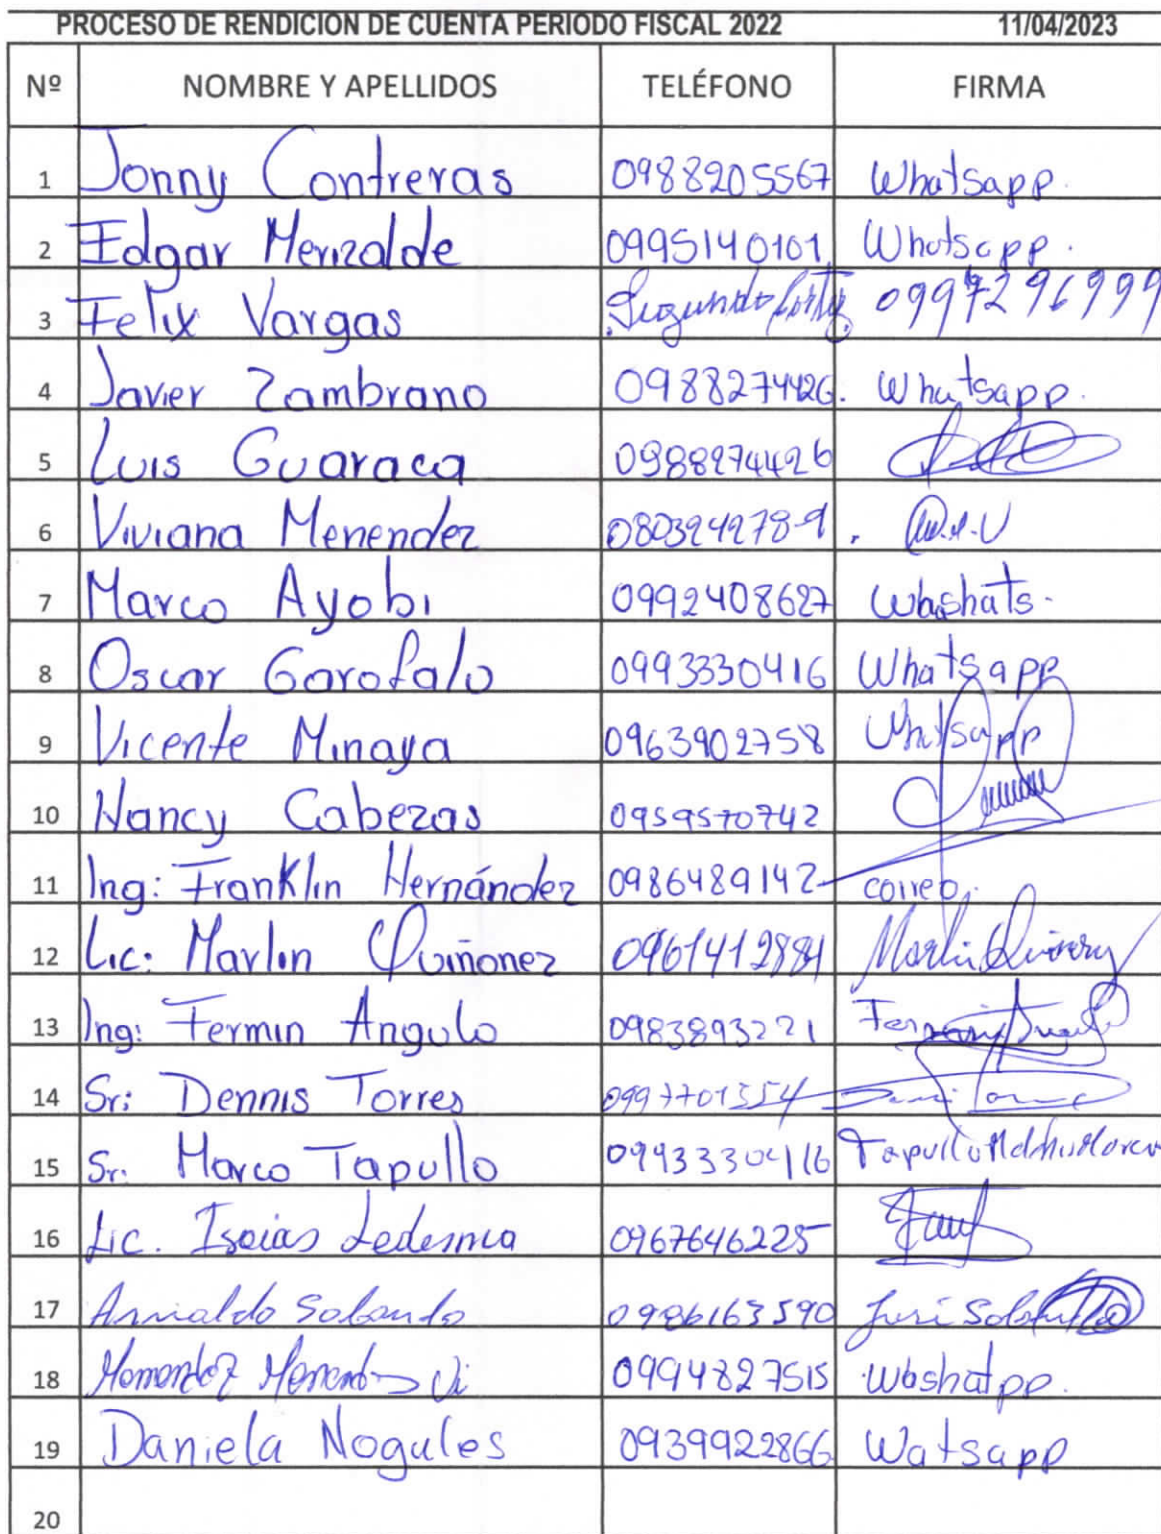 PROCESO DE RENDICION DE CUENTA PERIODO FISCAL 2022 11/04/2023
Nº NOMBRE Y APELLIDOS TELÉFONO FIRMA
1 Jonny Contreras 0988205567 Whatsapp.
2 Edgar Merizalde 0995140101 Whatsapp.
3 Felix Vargas Segundo Cortez 0997296999
4 Javier Zambrano 0988274426. Whatsapp.
5 Luis Guaraca 0988274426
6 Viviana Menendez 0803242789.
7 Marco Ayobi 0992408627 Wbashats.
8 Oscar Garofalo 0993330416 Whatsapp
9 Vicente Minaya 0963902758 Whatsapp
10 Nancy Cabezas 0959570742
11 Ing: Franklin Hernández 0986489142 correo.
12 Lic: Marlin Quiñonez Marlin
13 Ing: Fermin Angulo 0983893221 Fermin Angulo
14 Sr: Dennis Torres 0997701354
15 Sr. Marco Tapullo Tapullo
16 Lic. Isaias Ledesma 0967646225
17 Arnaldo Solando 0986163590
18 Menendez 0994827515 Washatpp.
19 Daniela Nogales 0939922866 Watsapp
20